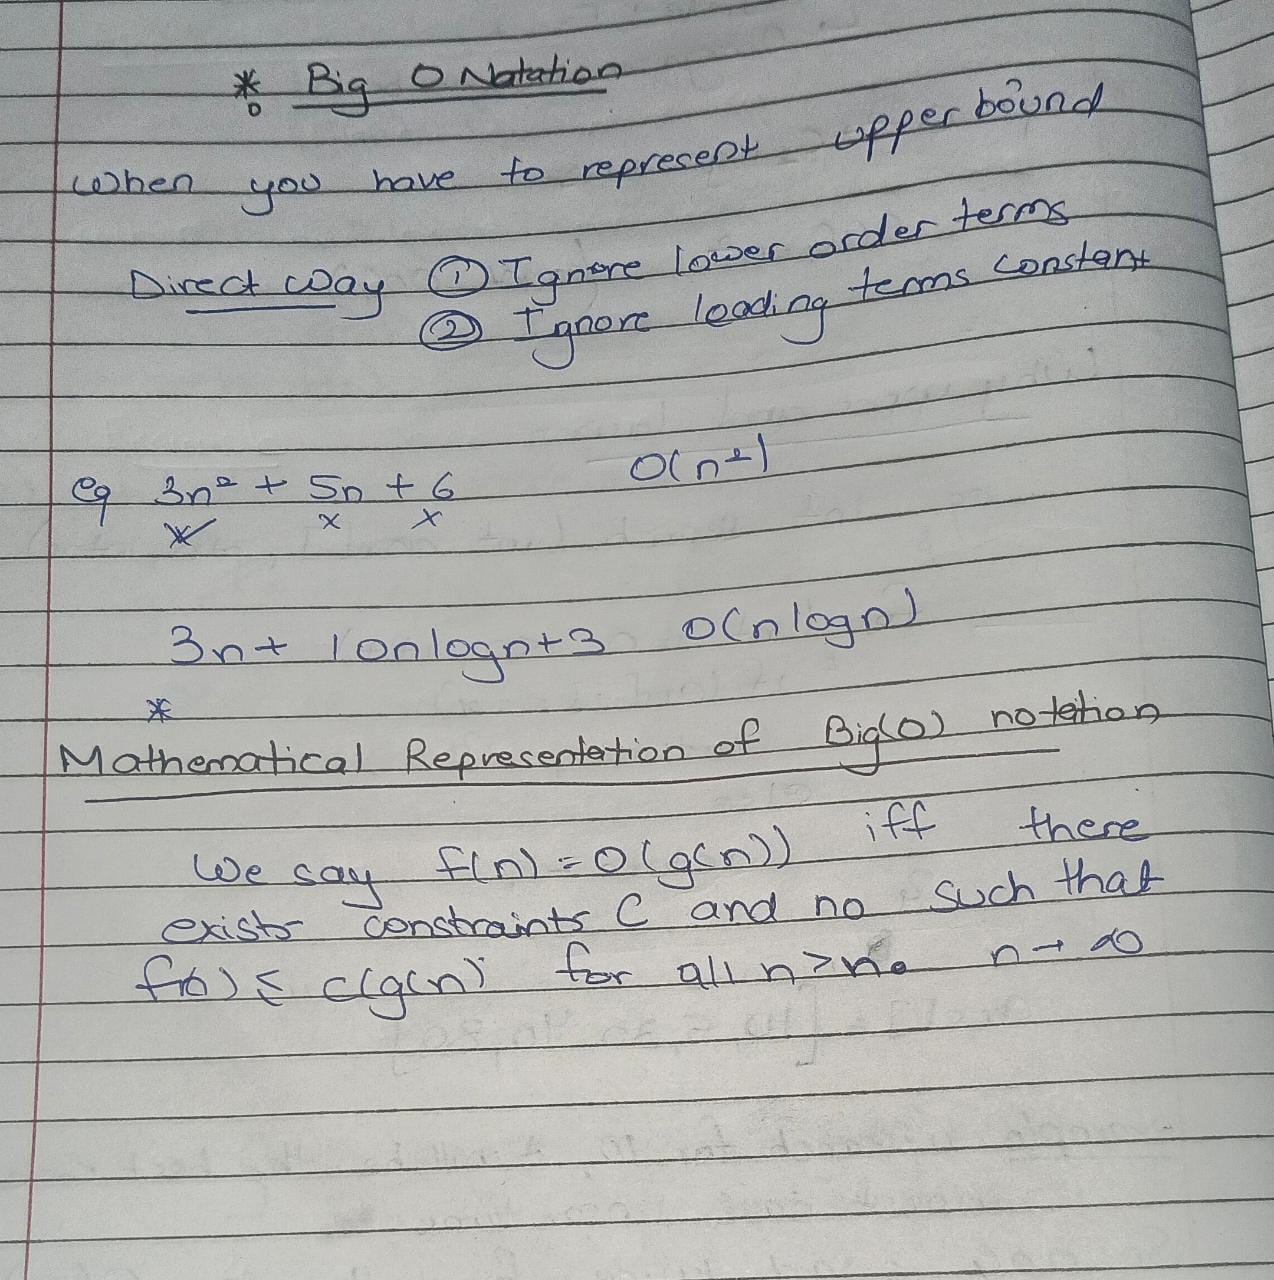 * Big O Notation
When you have to represent upper bound
Direct way ① Ignore lower order terms
② Ignore leading terms constant
eg 3n² + 5n + 6 O(n²)
x x x
3n + 10nlogn + 3 O(nlogn)
*
Mathematical Representation of Big(O) notation
We say f(n) = O(g(n)) iff there
exists constraints C and no such that
f(n) ≤ c(g(n) for all n > n₀ n → ∞